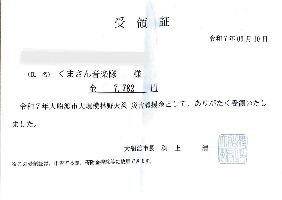 受領証
令和7年05月10日
(氏名) くまさん音楽隊 様
金 7,782 円
令和7年大船渡市大規模林野火災 災害義援金として、ありがたく受領いたし
ました。
大船渡市長 渕上 清